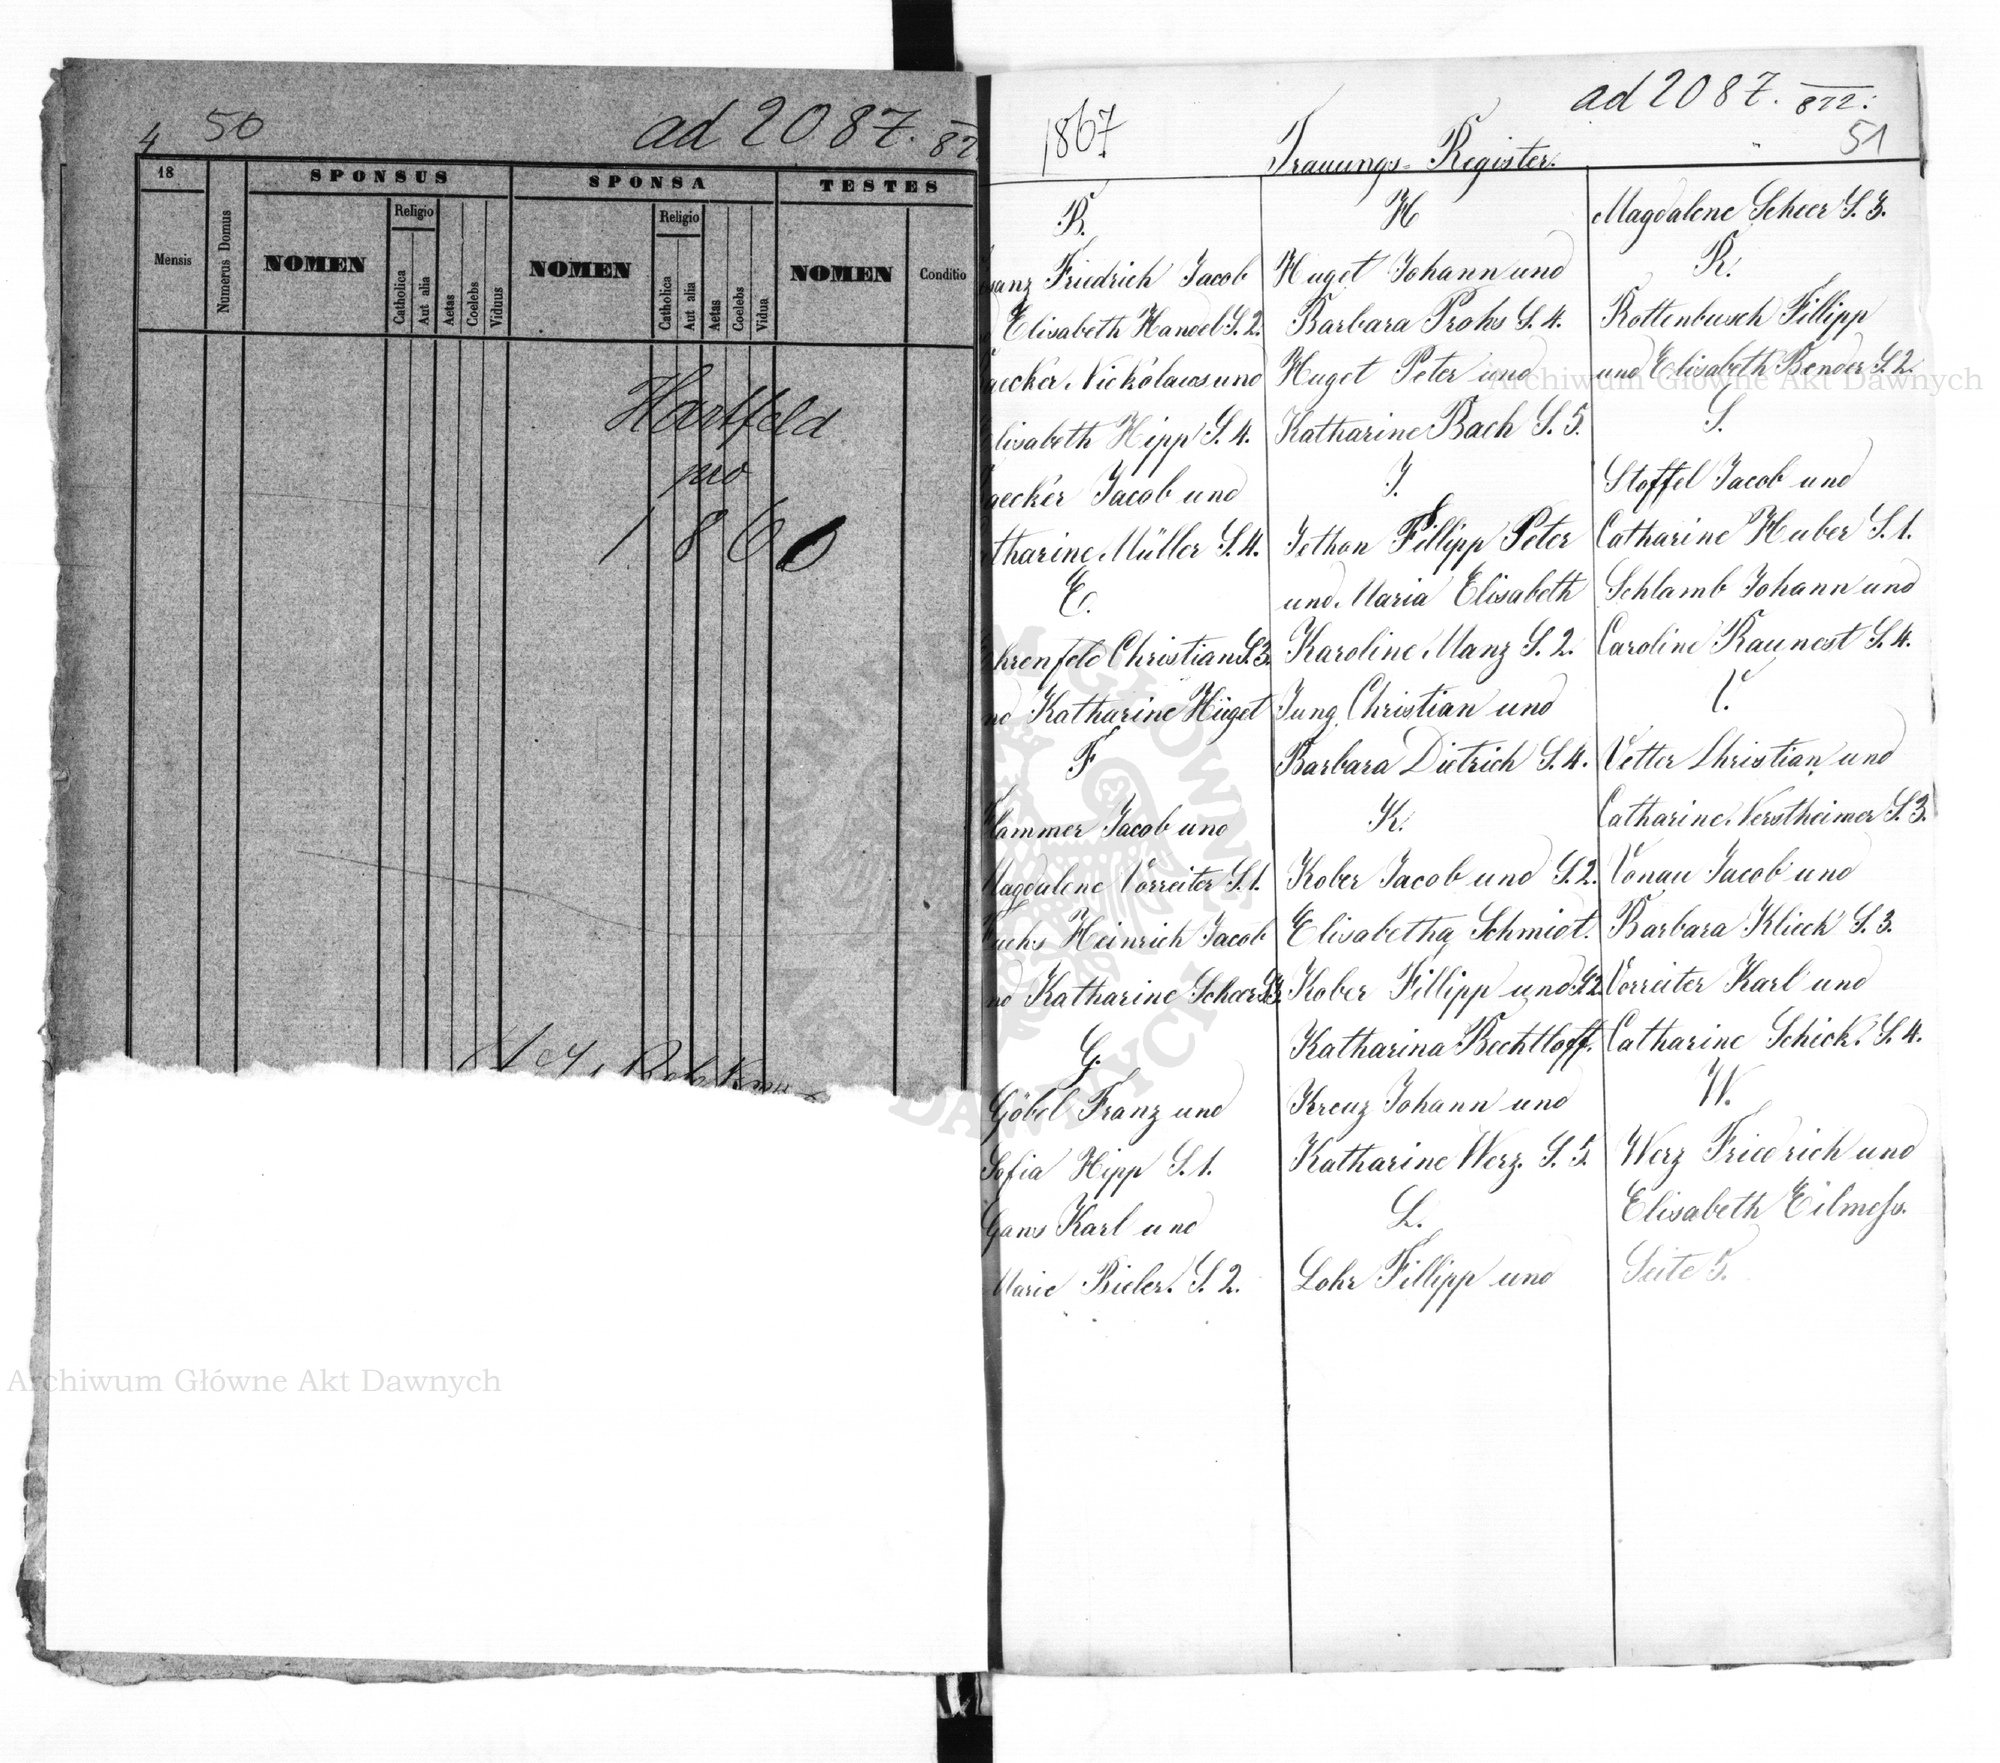 4 50 ad 2087.
18
SPONSUS SPONSA TESTES
Mensis Numerus Domus NOMEN Religio Catholica Aut alia Aetas Coelebs Viduus NOMEN Religio Catholica Aut alia Aetas Coelebs Vidua NOMEN Conditio
Hartfeld
pro
1866
ad 2087. 872.
1867 51
Trauungs-Register.
B.
Friedrich Jacob
Elisabeth Handel S. 2.
Nickolaus und
Elisabeth Hipp S. 4.
Jacob und
Müller S. 4.
E.
Ehrenfeld Christian S. 3.
und Katharine Hüget
F
Flammer Jacob und
Magdalene Vorreiter S. 1.
Fuchs Heinrich Jacob
und Katharine Scheer S. 3.
G.
Göbel Franz und
Sofia Hipp S. 1.
Gans Karl und
Marie Bieler. S. 2.
H
Huget Johann und
Barbara Prohs S. 4.
Huget Peter und
Katharine Bach S. 5.
J.
Jethon Fillipp Peter
und Maria Elisabeth
Karoline Manz S. 2.
Jung Christian und
Barbara Dietrich S. 4.
K.
Kober Jacob und S. 2.
Elisabetha Schmidt.
Kober Fillipp und S. 2.
Katharina Bechtloff.
Kreuz Johann und
Katharine Werz. S. 5.
L.
Lohr Fillipp und
Magdalene Scheer S. 3.
R.
Rottenbusch Fillipp
und Elisabeth Bender S. 2.
S.
Stoffel Jacob und
Catharine Huber S. 1.
Schlamb Johann und
Caroline Raunest S. 4.
V.
Vetter Christian und
Catharine Nerstheimer S. 3.
Vonau Jacob und
Barbara Klieck S. 3.
Vorreiter Karl und
Catharine Schick. S. 4.
W.
Werz Friedrich und
Elisabeth Eilmess.
Seite 5.
Archiwum Główne Akt Dawnych
Archiwum Główne Akt Dawnych